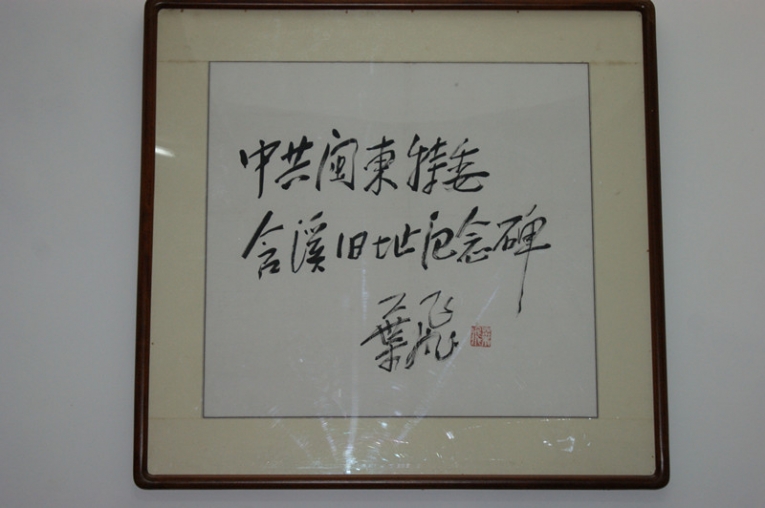 中共闽东特委
含溪旧址纪念碑
葉飛